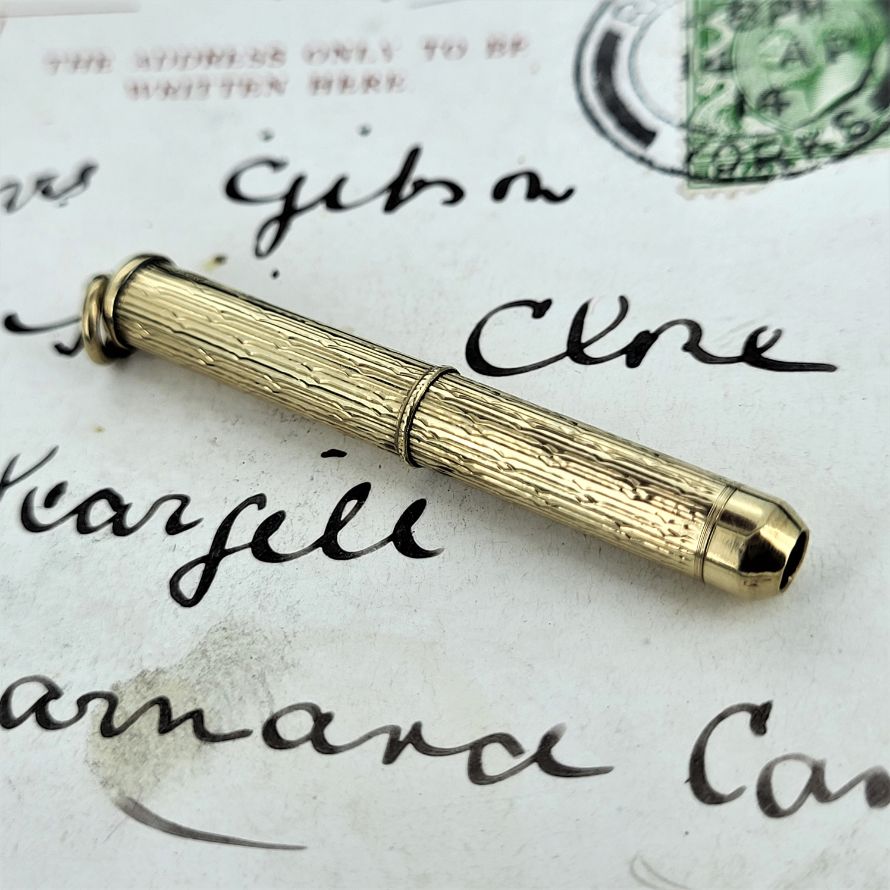 THE ADDRESS ONLY TO BE
WRITTEN HERE
8 PM
AP
14
ORKS
Gibson
Close
Cargill
Barnard Cas